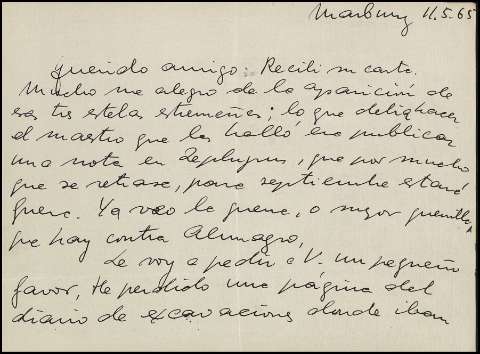 Marburg 11.5.65
Querido amigo: Recibí su carta.
Mucho me alegro de la aparición de
esas tres estelas extremeñas; lo que debía hacer
el maestro que las halló era publicar
una nota en Zephyrus, que por mucho
que se retrase, para septiembre estará
fuera. Ya veo la guerra, o mejor guerrilla
que hay contra Almagro,
Le voy a pedir a V. un pequeño
favor, He perdido una página del
diario de excavaciones donde iban